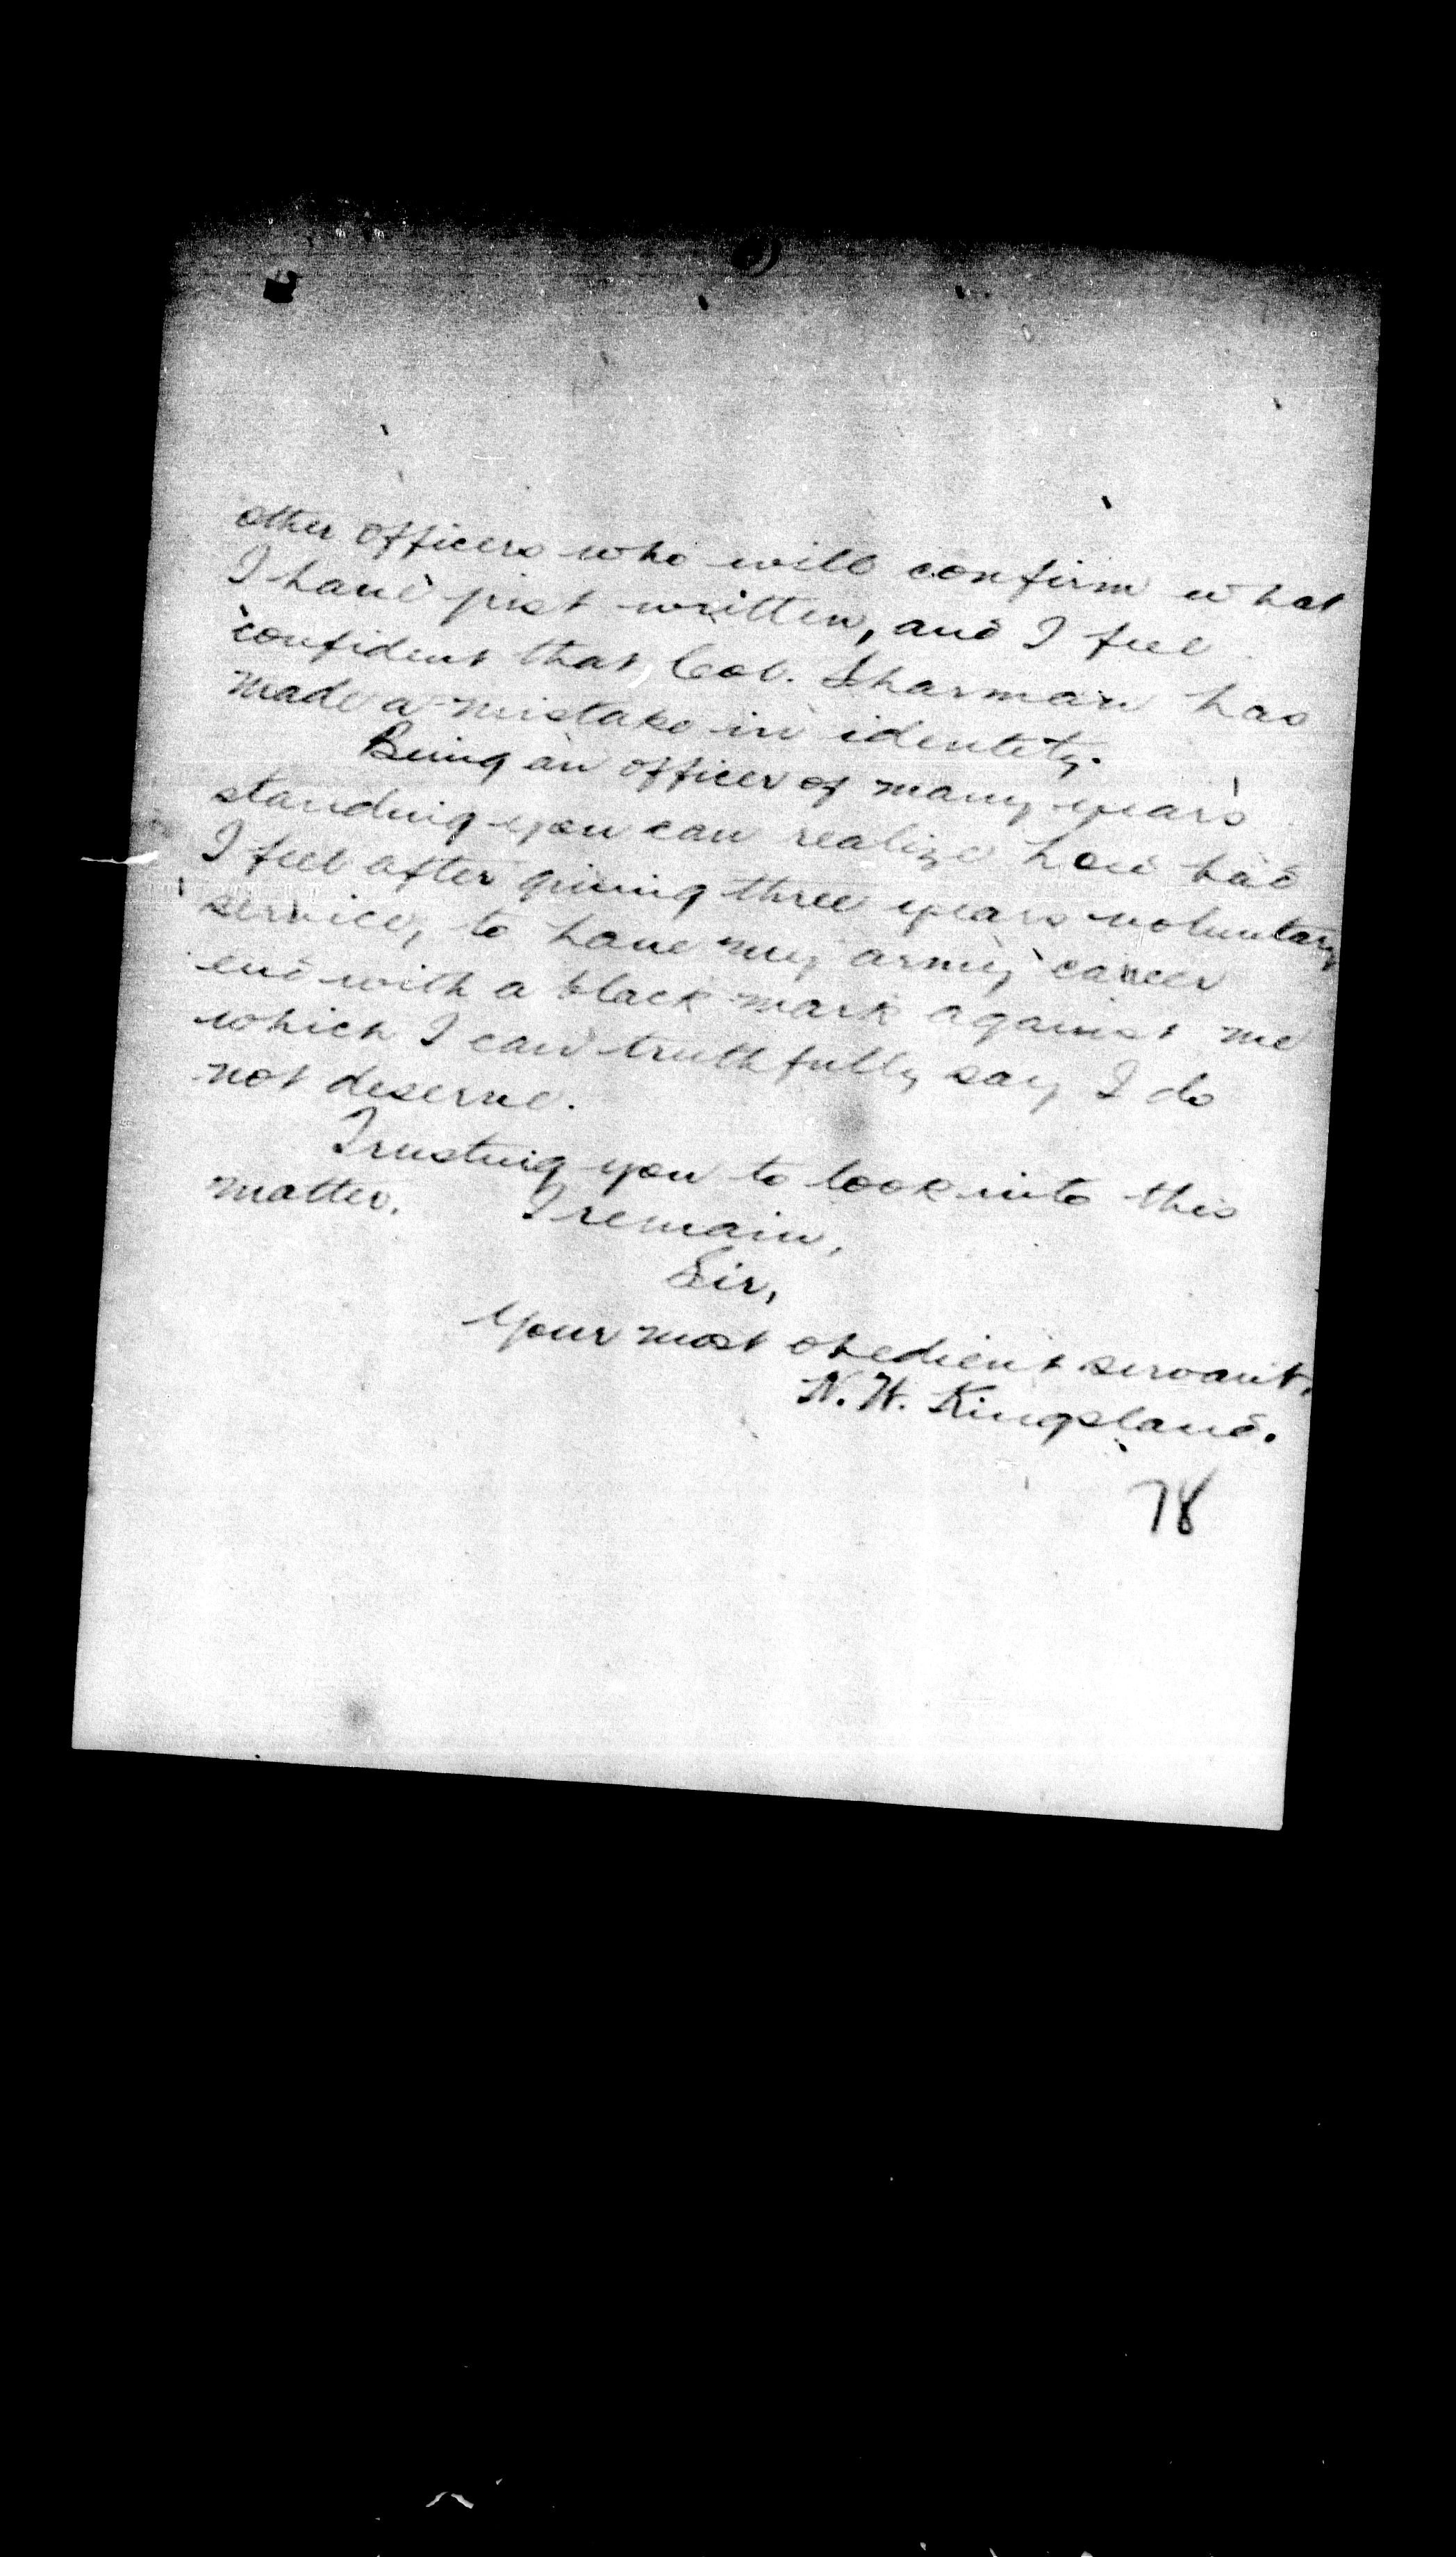 other officers who will confirm what
I have just written, and I feel
confident that, Col. Sharman has
made a mistake in identity.
Being an officer of many years
standing you can realize how bad
I feel after giving three years voluntary
service, to have my army career
end with a black mark against me
which I can truthfully say I do
not deserve.
Trusting you to look into this
matter. I remain,
Sir,
Your most obedient servant,
N. H. Kingsland.
78